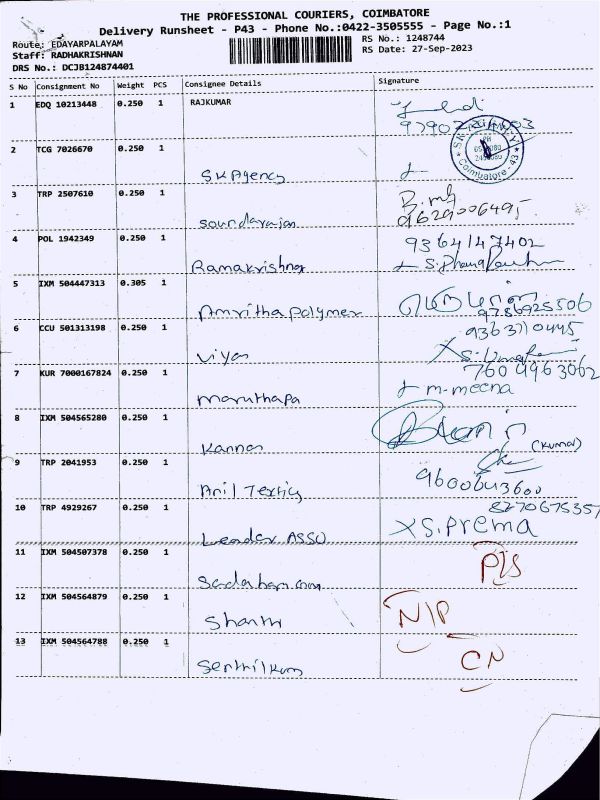 THE PROFESSIONAL COURIERS, COIMBATORE
Delivery Runsheet - P43 - Phone No.:0422-3505555 - Page No.:1
Route: EDAYARPALAYAM
Staff: RADHAKRISHNAN
DRS No.: DCJB124874401
RS No.: 1248744
RS Date: 27-Sep-2023
S No Consignment No Weight PCS Consignee Details Signature
1 EDQ 10213448 0.250 1 RAJKUMAR
2 TCG 7026670 0.250 1
SK Agency
Coimbatore - 43
3 TRP 2507610 0.250 1
soundarajan
9629006495
4 POL 1942349 0.250 1
9364147402
Ramakrishnan
5 IXM 504447313 0.305 1
Amritha polymer
9786925506
6 CCU 501313198 0.250 1
9363710445
Viyan
7 KUR 7000167824 0.250 1
7604963062
maruthapa
m-meena
8 IXM 504565280 0.250 1
Kannan
(Kumar)
9 TRP 2041953 0.250 1
9600643600
Anil Textiles
10 TRP 4929267 0.250 1
8270675357
XS.Prema
Leader ASSO
11 IXM 504507378 0.250 1
12 IXM 504564879 0.250 1
Shanthi
N/P
13 IXM 504564788 0.250 1
Senthilkum
CN